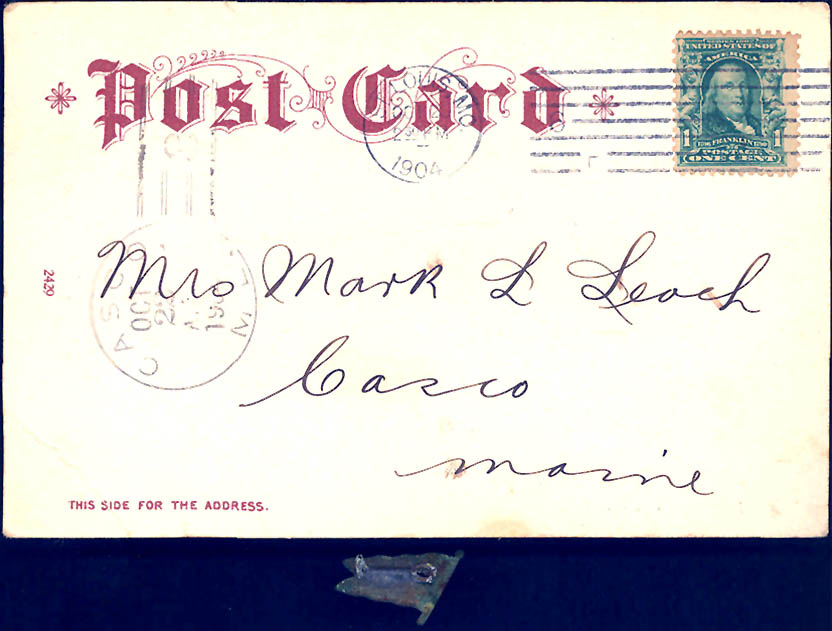 Post Card
LOUIS, MO
1904
SERIES 1902
UNITED STATES OF
AMERICA
1 1706 FRANKLIN 1790 1
POSTAGE
ONE CENT
2429
CASCO
OCT
ME.
Mrs Mark L Leach
Casco
Maine
THIS SIDE FOR THE ADDRESS.